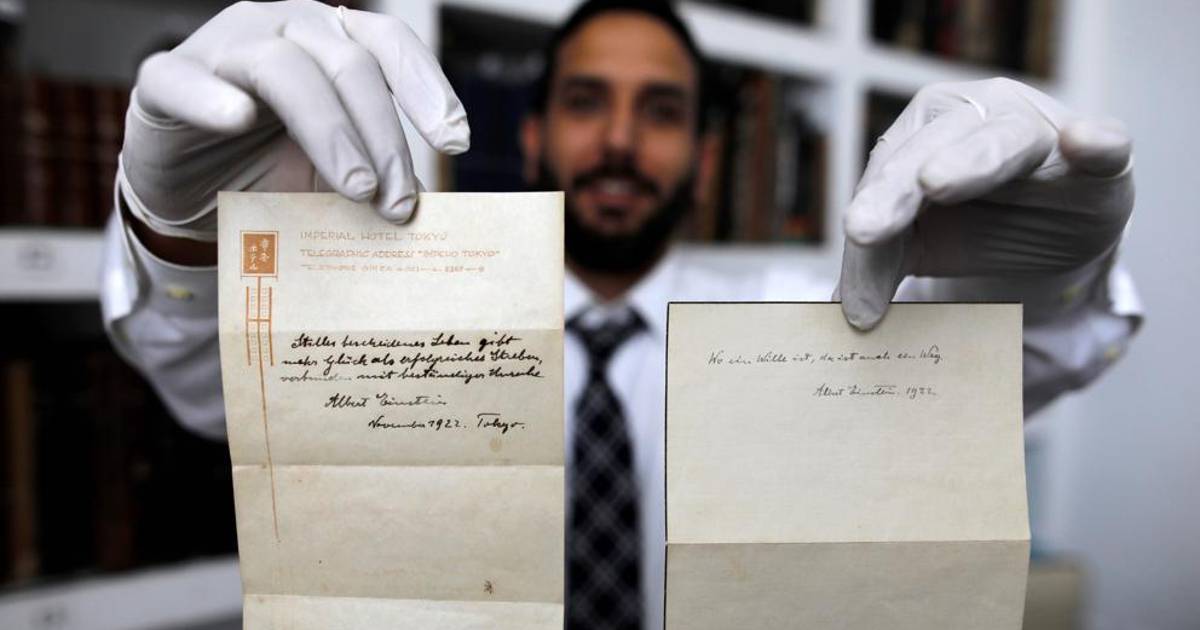 帝
ホテル
IMPERIAL HOTEL TOKYO
TELEGRAPHIC ADDRESS "IMPEHO TOKYO"
Stilles bescheidenes Leben gibt
mehr Glück als erfolgreiches Streben,
verbunden mit beständiger Unruhe
Albert Einstein
November 1922. Tokyo.
Wo ein Wille ist, da ist auch ein Weg
Albert Einstein. 1922.